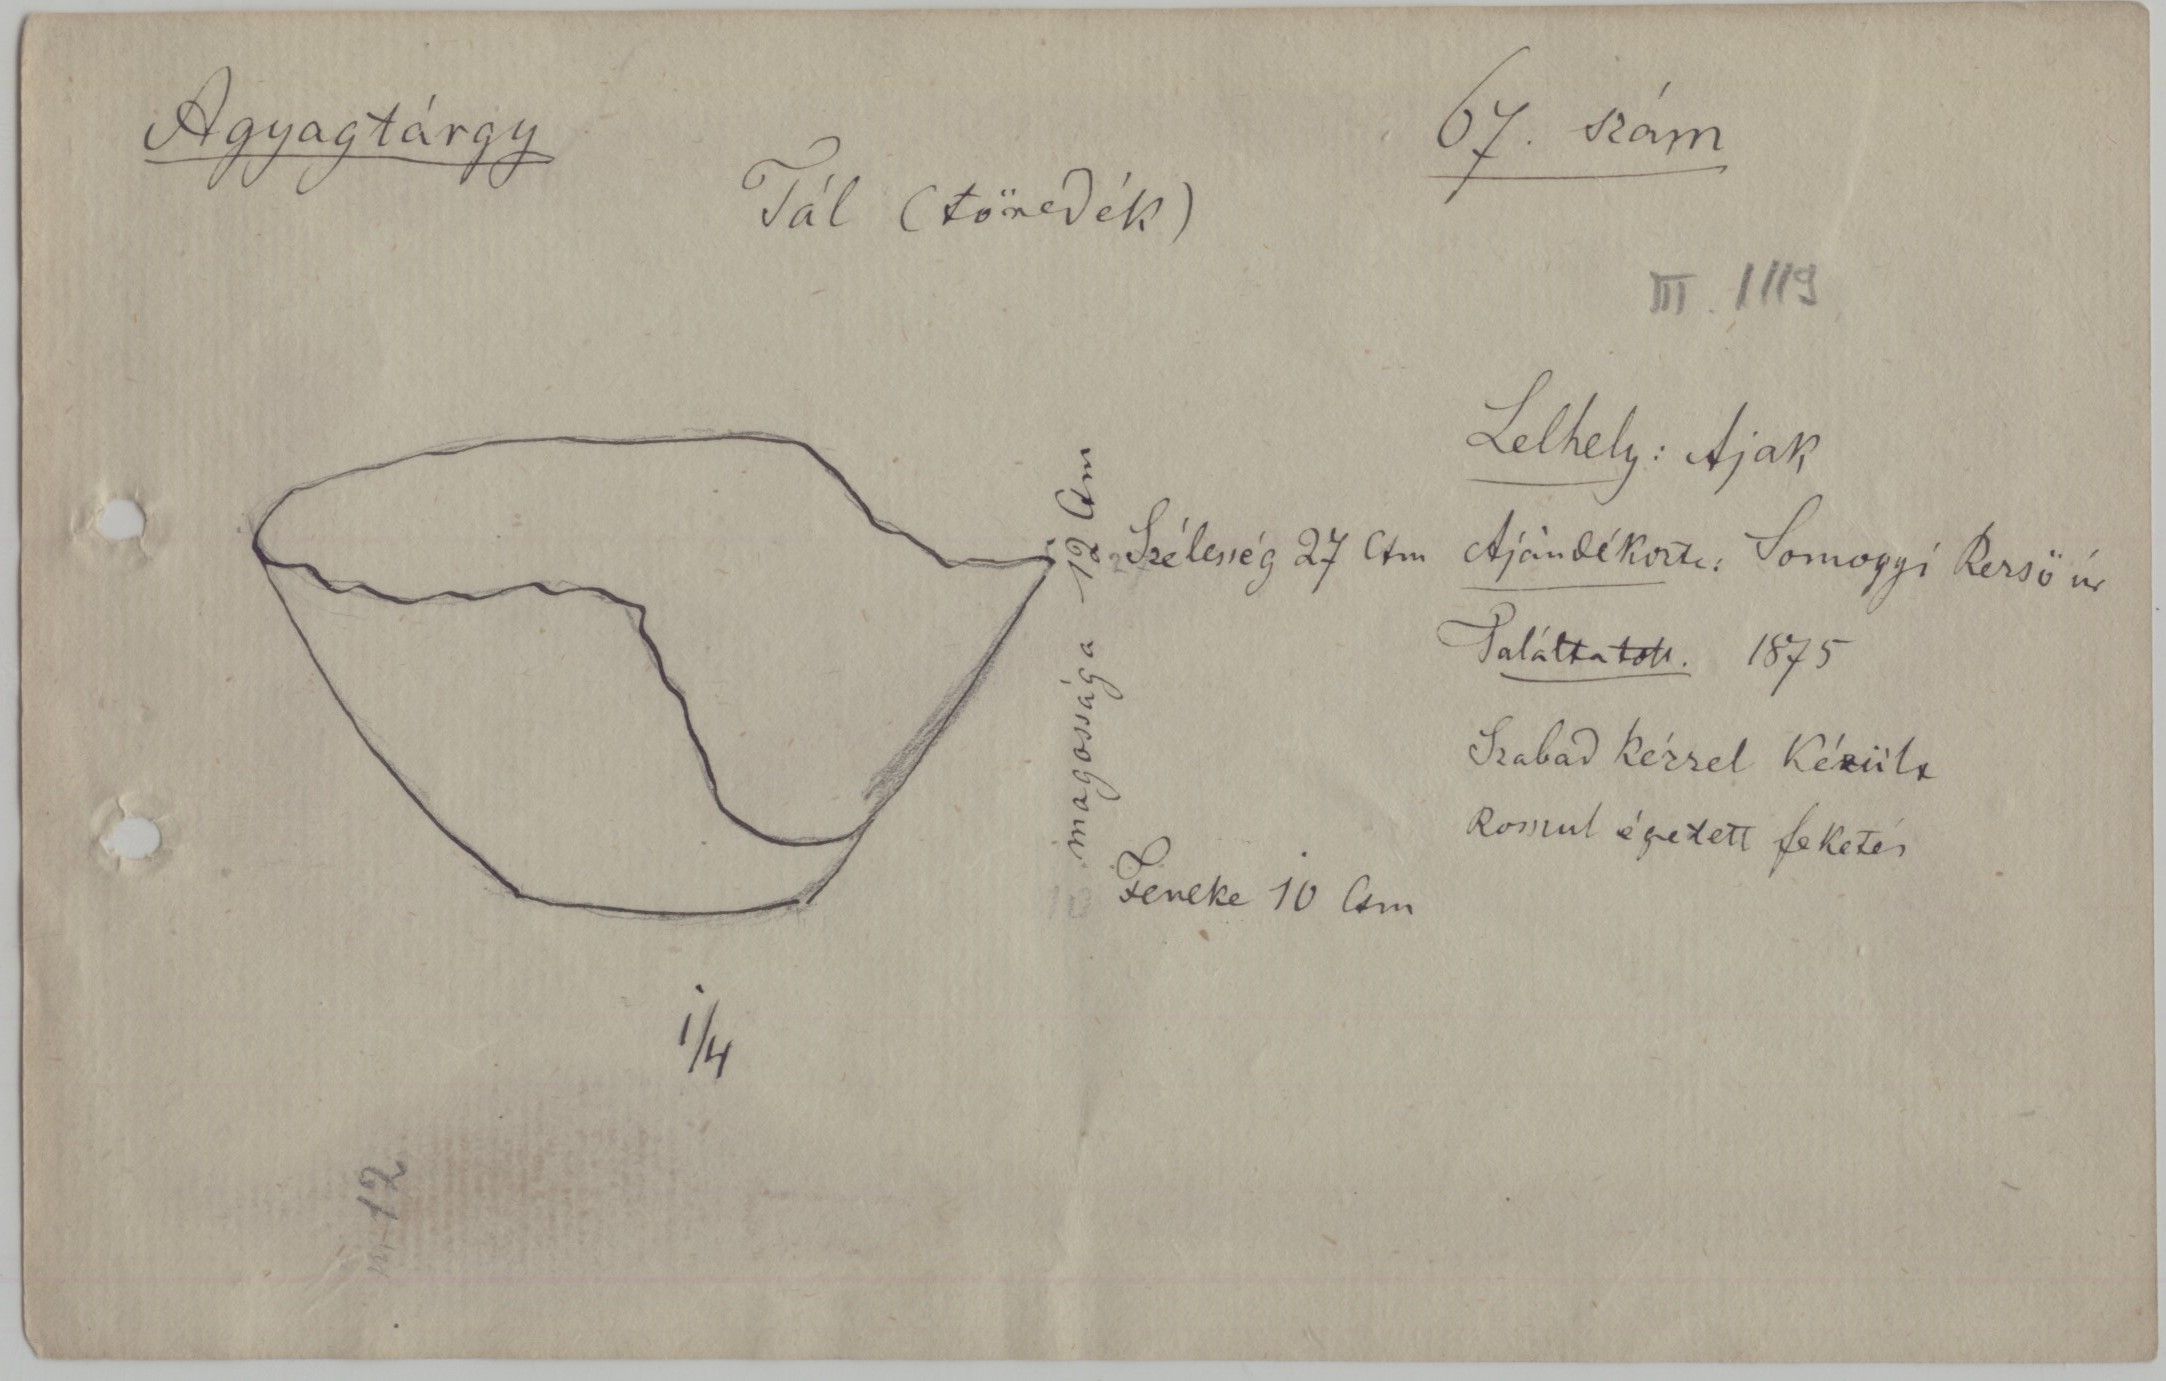 Agyagtárgy
67. szám
Tál (töredék)
III. 1119
Lelhely: Ajak
magossága 12 Ctm
Szélesség 27 Ctm
Ajándékozta: Somogyi Rezső úr
Találtatott. 1875
Szabad kézzel készült
Rosszul égetett feketés
Feneke 10 Ctm
1/4
12